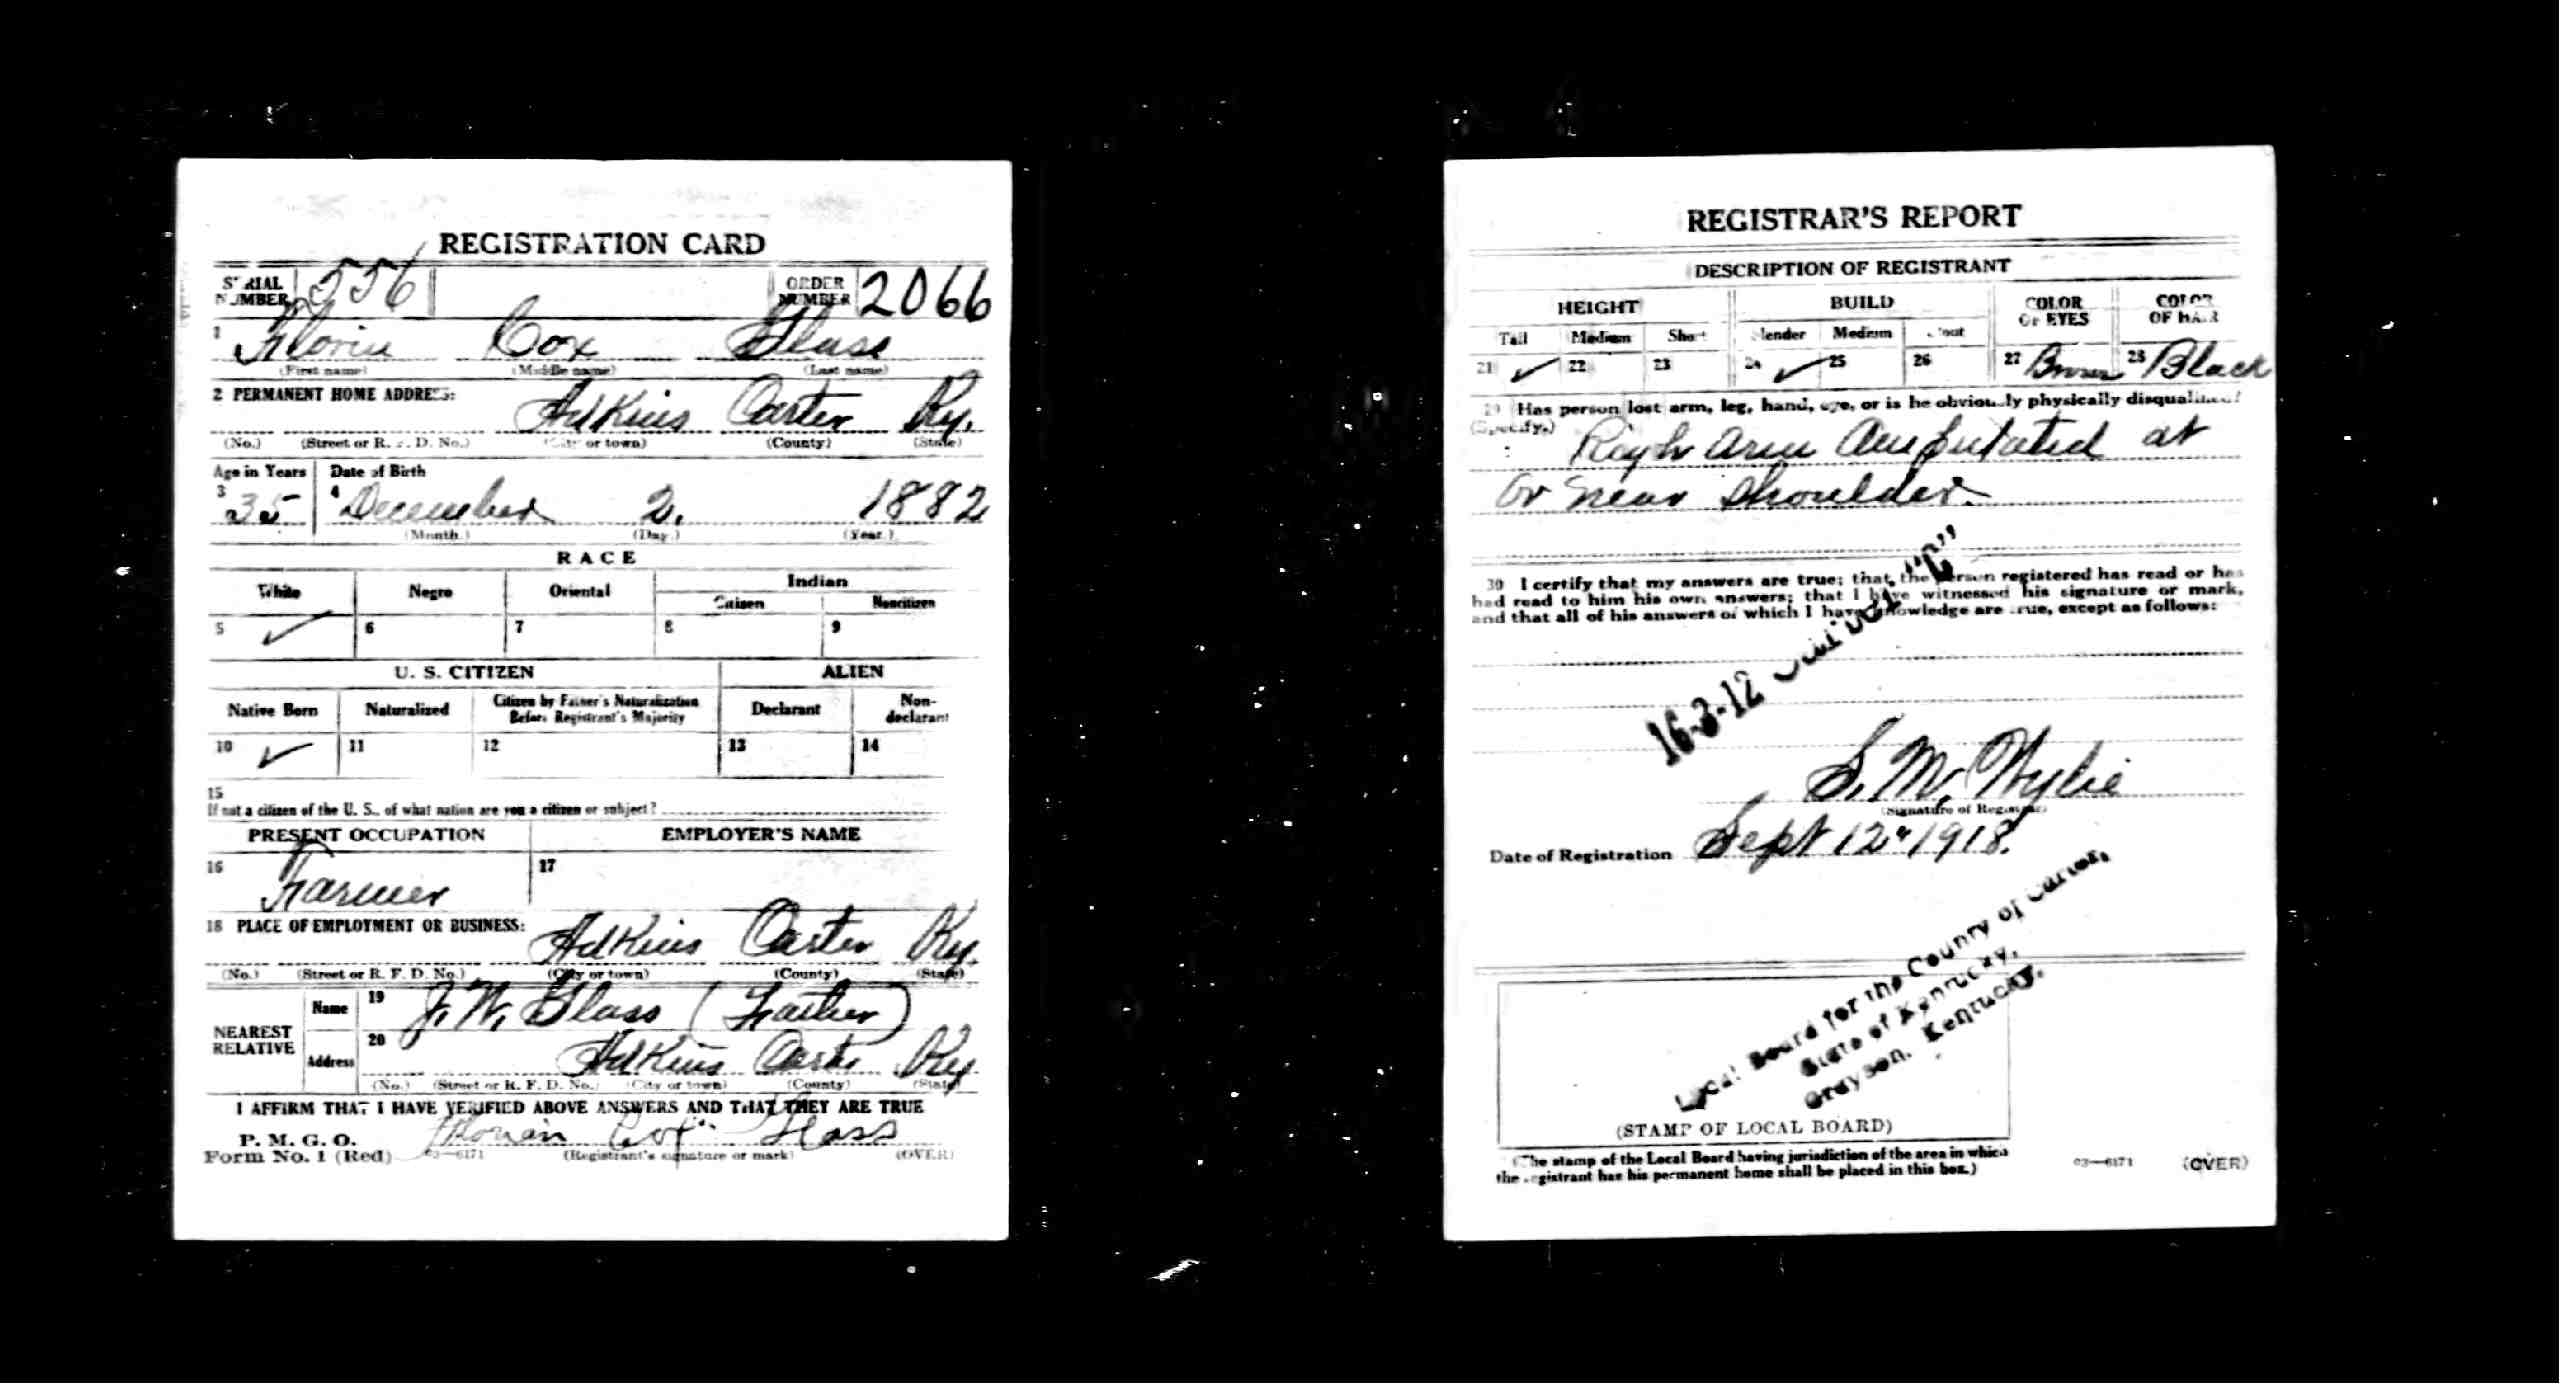 REGISTRATION CARD
SERIAL NUMBER 556 ORDER NUMBER 2066
1 Florin Cox Glass
(First name) (Middle name) (Last name)
2 PERMANENT HOME ADDRESS:
Adkins Carter Ky.
(No.) (Street or R. F. D. No.) (City or town) (County) (State)
Age in Years Date of Birth
3 35 4 December 2. 1882
(Month.) (Day.) (Year.)
RACE
White Negro Oriental Indian
Citizen Noncitizen
5 ✓ 6 7 8 9
U. S. CITIZEN ALIEN
Native Born Naturalized Citizen by Father's Naturalization Before Registrant's Majority Declarant Non-declarant
10 ✓ 11 12 13 14
15
If not a citizen of the U. S., of what nation are you a citizen or subject?
PRESENT OCCUPATION EMPLOYER'S NAME
16 Farmer 17
18 PLACE OF EMPLOYMENT OR BUSINESS:
Adkins Carter Ky.
(No.) (Street or R. F. D. No.) (City or town) (County) (State)
NEAREST RELATIVE
Name 19 J. W. Glass (Father)
Address 20 Adkins Carter Ky
(No.) (Street or R. F. D. No.) (City or town) (County) (State)
I AFFIRM THAT I HAVE VERIFIED ABOVE ANSWERS AND THAT THEY ARE TRUE
P. M. G. O.
Form No. 1 (Red) 03—6171 Cox Glass
(Registrant's signature or mark) (OVER)
REGISTRAR'S REPORT
DESCRIPTION OF REGISTRANT
HEIGHT BUILD COLOR OF EYES COLOR OF HAIR
Tall Medium Short Slender Medium Stout
21 ✓ 22 23 24 ✓ 25 26 27 Brown 28 Black
29 Has person lost arm, leg, hand, eye, or is he obviously physically disqualified?
(Specify.) Righ arm Amputated at
or near shoulder.
30 I certify that my answers are true; that the person registered has read or has
had read to him his own answers; that I have witnessed his signature or mark,
and that all of his answers of which I have knowledge are true, except as follows:
16-3-12 "C"
S. M. Wylie
(Signature of Registrar)
Date of Registration Sept 12" 1918.
Local Board for the County of Carter,
State of Kentucky,
Grayson, Kentucky.
(STAMP OF LOCAL BOARD)
(The stamp of the Local Board having jurisdiction of the area in which
the registrant has his permanent home shall be placed in this box.)
03—6171 (OVER)